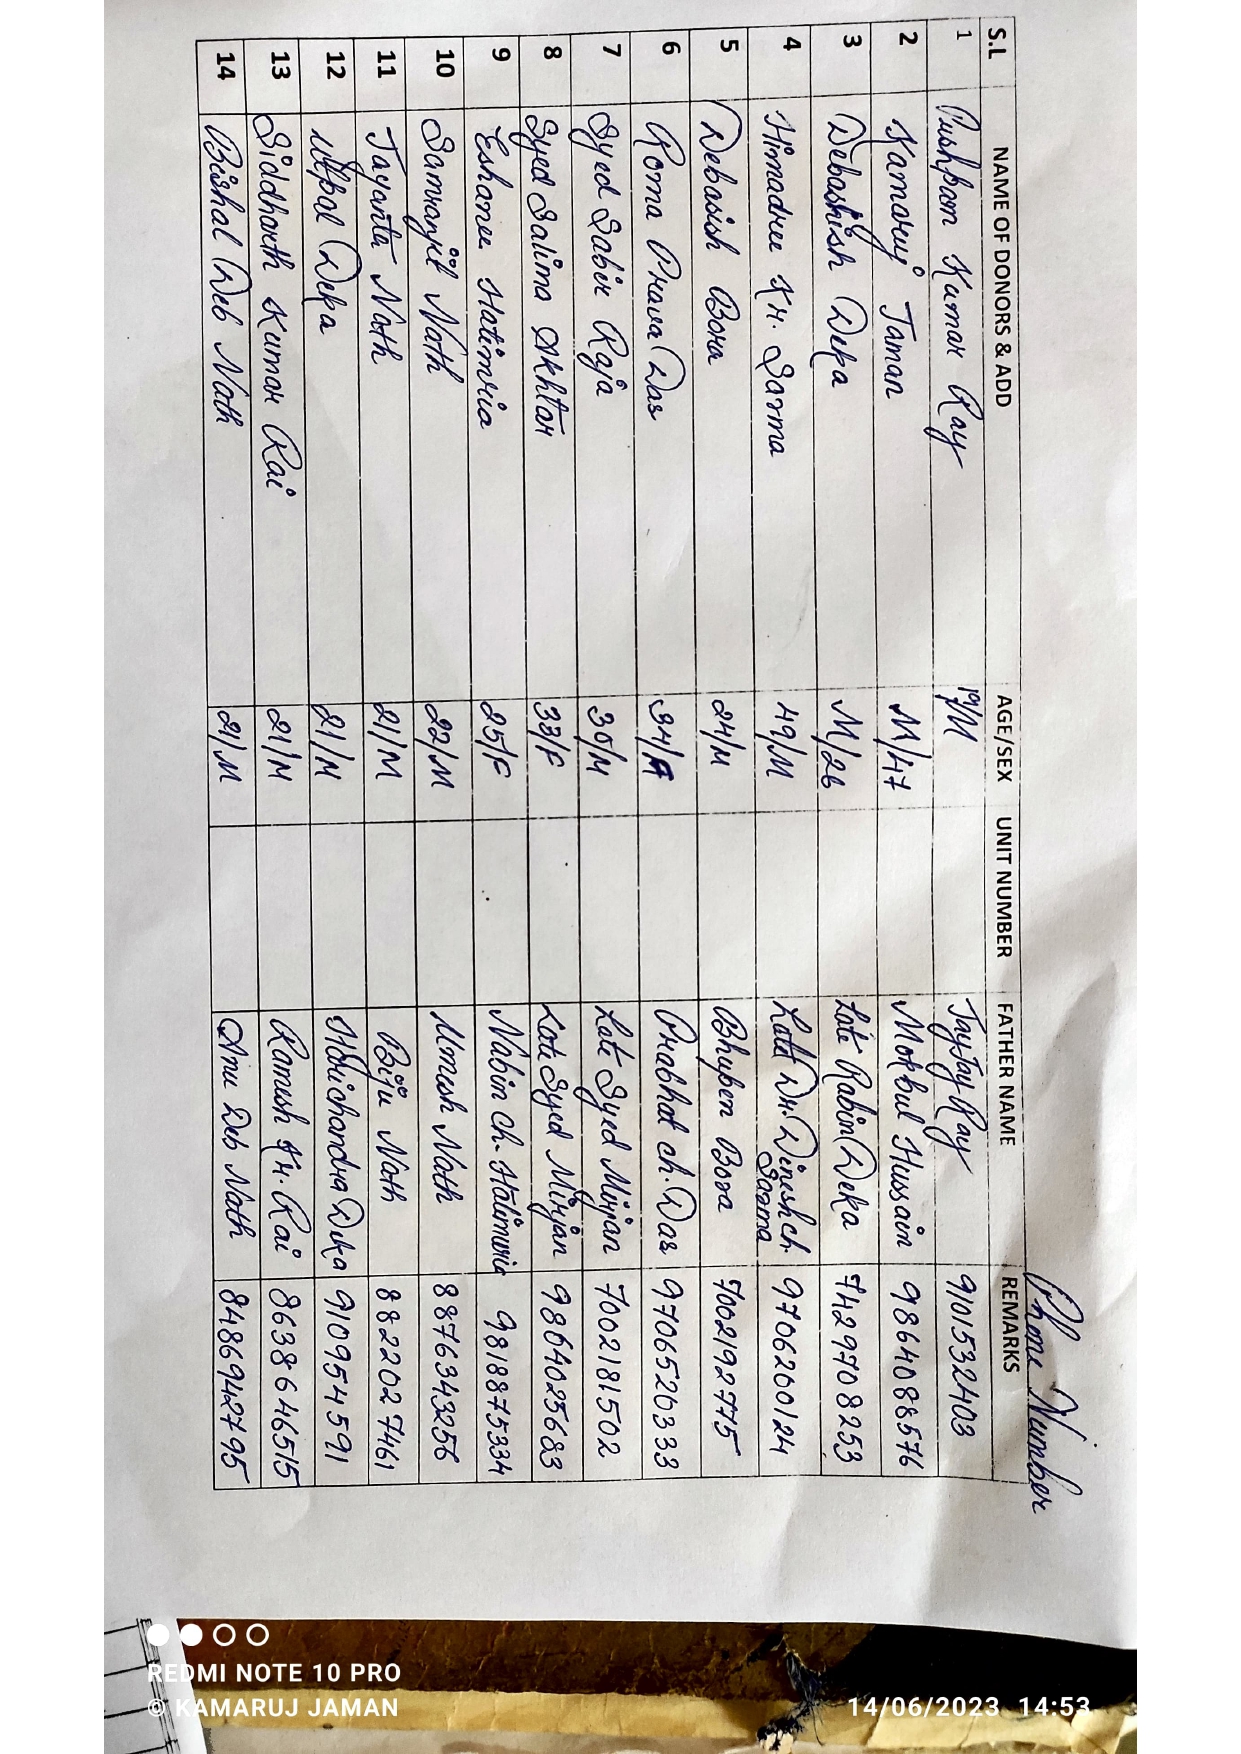 Phone Number
S.L NAME OF DONORS & ADD AGE/SEX UNIT NUMBER FATHER NAME REMARKS
1 Pushpam Kumar Ray 19/M JayJay Ray 9101532403
2 Kamaruj Jaman M/47 Mokbul Hussain 9864088576
3 Debashish Deka M/26 Late Rabin Deka 7429708253
4 Himadree Kr. Sarma 49/M Late Dr. Dinesh ch. Sarma 9706200124
5 Debasish Bora 24/M Bhupen Bora 7002192775
6 Roma Prava Das 34/F Prabhat ch. Das 9706520333
7 Syed Sabir Raja 30/M Late Syed Mirjan 7002181502
8 Syed Salima Akhtar 33/F Late Syed Mirjan 9864025683
9 Eshanee Hatimuria 25/F Nabin ch. Hatimuria 9818875334
10 Samranjit Nath 22/M Umesh Nath 8876343256
11 Jayanta Nath 21/M Biju Nath 8822027461
12 Utpal Deka 21/M Harichandra Deka 9109541591
13 Siddharth Kumar Rai 21/M Ramesh Kr. Rai 8638646515
14 Bishal Deb Nath 21/M Deb Nath 8486942795
REDMI NOTE 10 PRO
© KAMARUJ JAMAN
14/06/2023 14:53